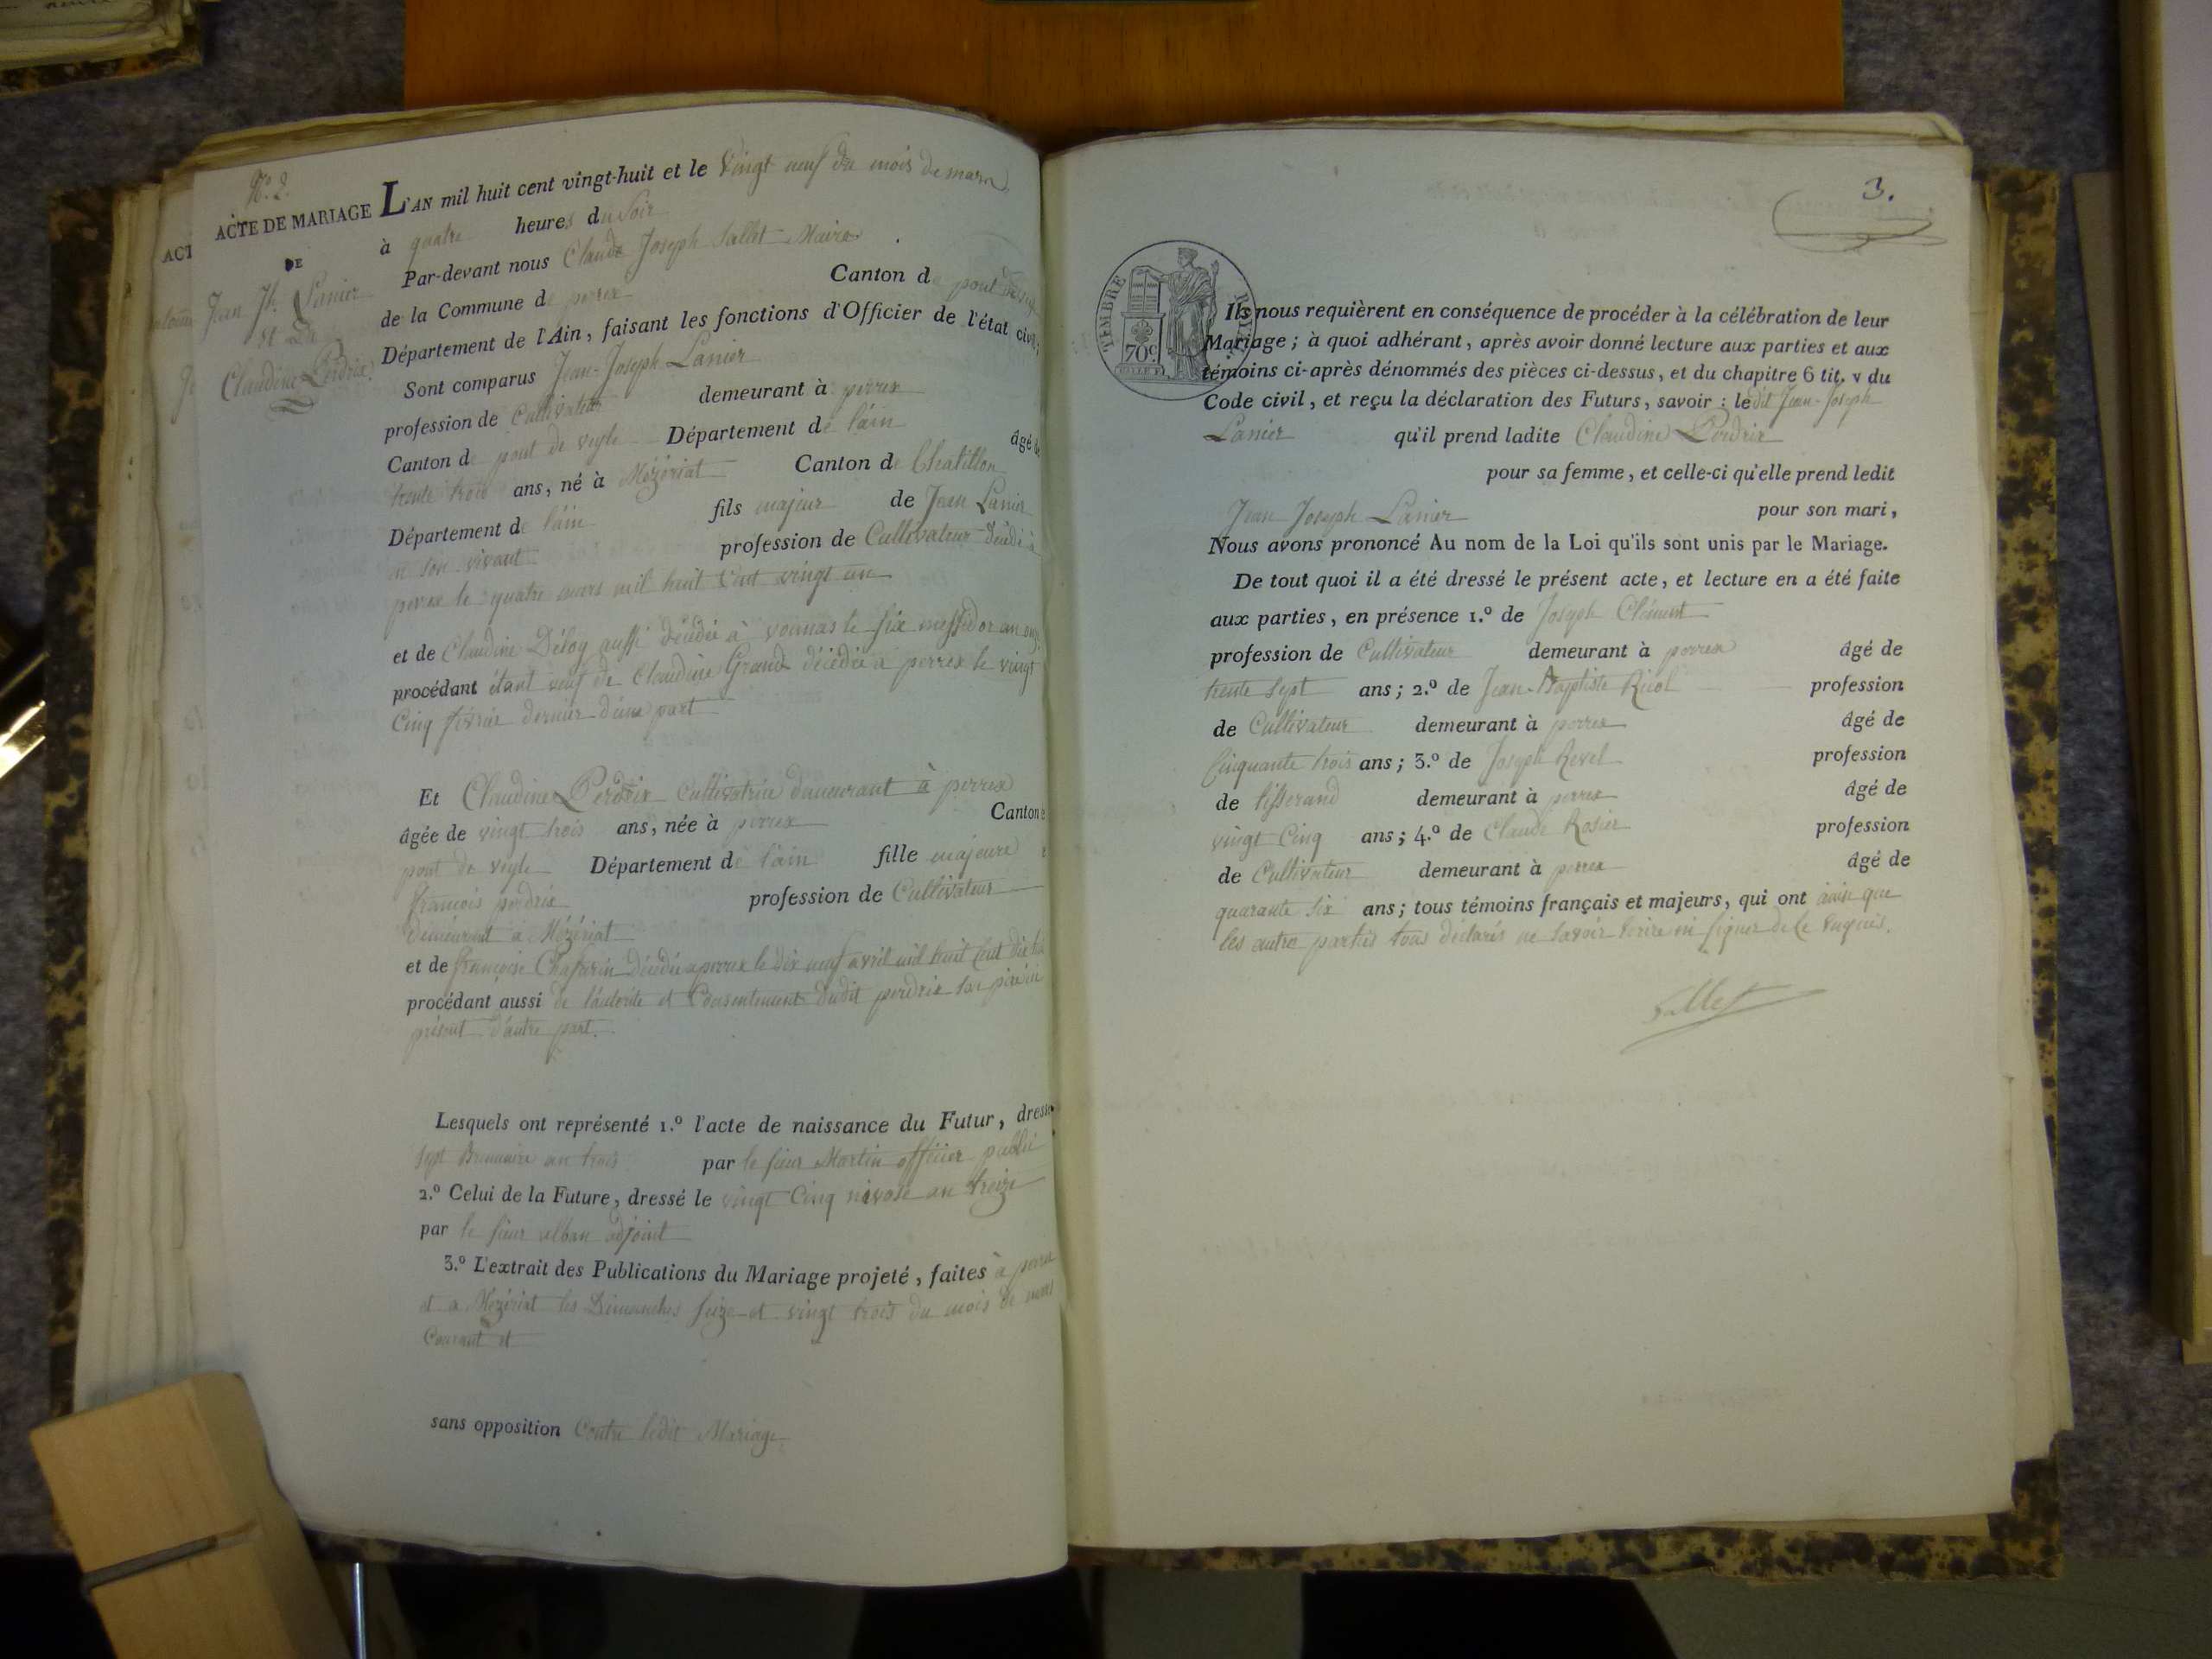 N.° 2.
ACTE DE MARIAGE
DE
Jean Jh. Lanier
et De
Claudine Perdrix
L'AN mil huit cent vingt-huit et le Vingt neuf du mois de mars
à quatre heures du Soir
Par-devant nous Claude Joseph Sallet Maire
de la Commune de perrex Canton de pont de veyle
Département de l'Ain, faisant les fonctions d'Officier de l'état civil;
Sont comparus Jean-Joseph Lanier
profession de Cultivateur demeurant à perrex
Canton de pont de veyle Département de l'ain âgé de
trente trois ans, né à Mézériat Canton de Chatillon
Département de l'ain fils majeur de Jean Lanier
en son vivant profession de Cultivateur décédé à
perrex le quatre mars mil huit Cent vingt un
et de Claudine Déloy aussi décédée à vonnas le six messidor an onze
procédant étant veuf de Claudine Grand décédée à perrex le vingt
Cinq février dernier d'une part
Et Claudine Perdrix Cultivatrice demeurant à perrex
âgée de vingt trois ans, née à perrex Canton
pont de veyle Département de l'ain fille majeure
françois perdrix profession de Cultivateur
demeurant à Mézériat
et de françoise Chafurin décédée a perrex le dix neuf avril mil huit Cent dix
procédant aussi de l'autorité et Consentement dudit perdrix son père ici
présent d'autre part.
Lesquels ont représenté 1.º l'acte de naissance du Futur, dressé
sept Brumaire an trois par le sieur Martin officier public
2.º Celui de la Future, dressé le vingt Cinq nivose an treize
par le sieur alban adjoint
3.º L'extrait des Publications du Mariage projeté, faites à perrex
et a Mézériat les Dimanches seize et vingt trois du mois de mars
Courant et
sans opposition Contre ledit Mariage
3.
TIMBRE ROYAL
70c
Ils nous requièrent en conséquence de procéder à la célébration de leur
Mariage; à quoi adhérant, après avoir donné lecture aux parties et aux
témoins ci-après dénommés des pièces ci-dessus, et du chapitre 6 tit. v du
Code civil, et reçu la déclaration des Futurs, savoir: le dit Jean-Joseph
Lanier qu'il prend ladite Claudine Perdrix
pour sa femme, et celle-ci qu'elle prend ledit
Jean Joseph Lanier pour son mari,
Nous avons prononcé Au nom de la Loi qu'ils sont unis par le Mariage.
De tout quoi il a été dressé le présent acte, et lecture en a été faite
aux parties, en présence 1.º de Joseph Clément
profession de Cultivateur demeurant à perrex âgé de
trente sept ans; 2.º de Jean-Baptiste Ricol profession
de Cultivateur demeurant à perrex âgé de
Cinquante trois ans; 3.º de Joseph Revel profession
de tisserand demeurant à perrex âgé de
vingt Cinq ans; 4.º de Claude Rosier profession
de Cultivateur demeurant à perrex âgé de
quarante six ans; tous témoins français et majeurs, qui ont ainsi que
les autres parties tous déclarés ne savoir écrire ni signer de ce enquis.
Sallet